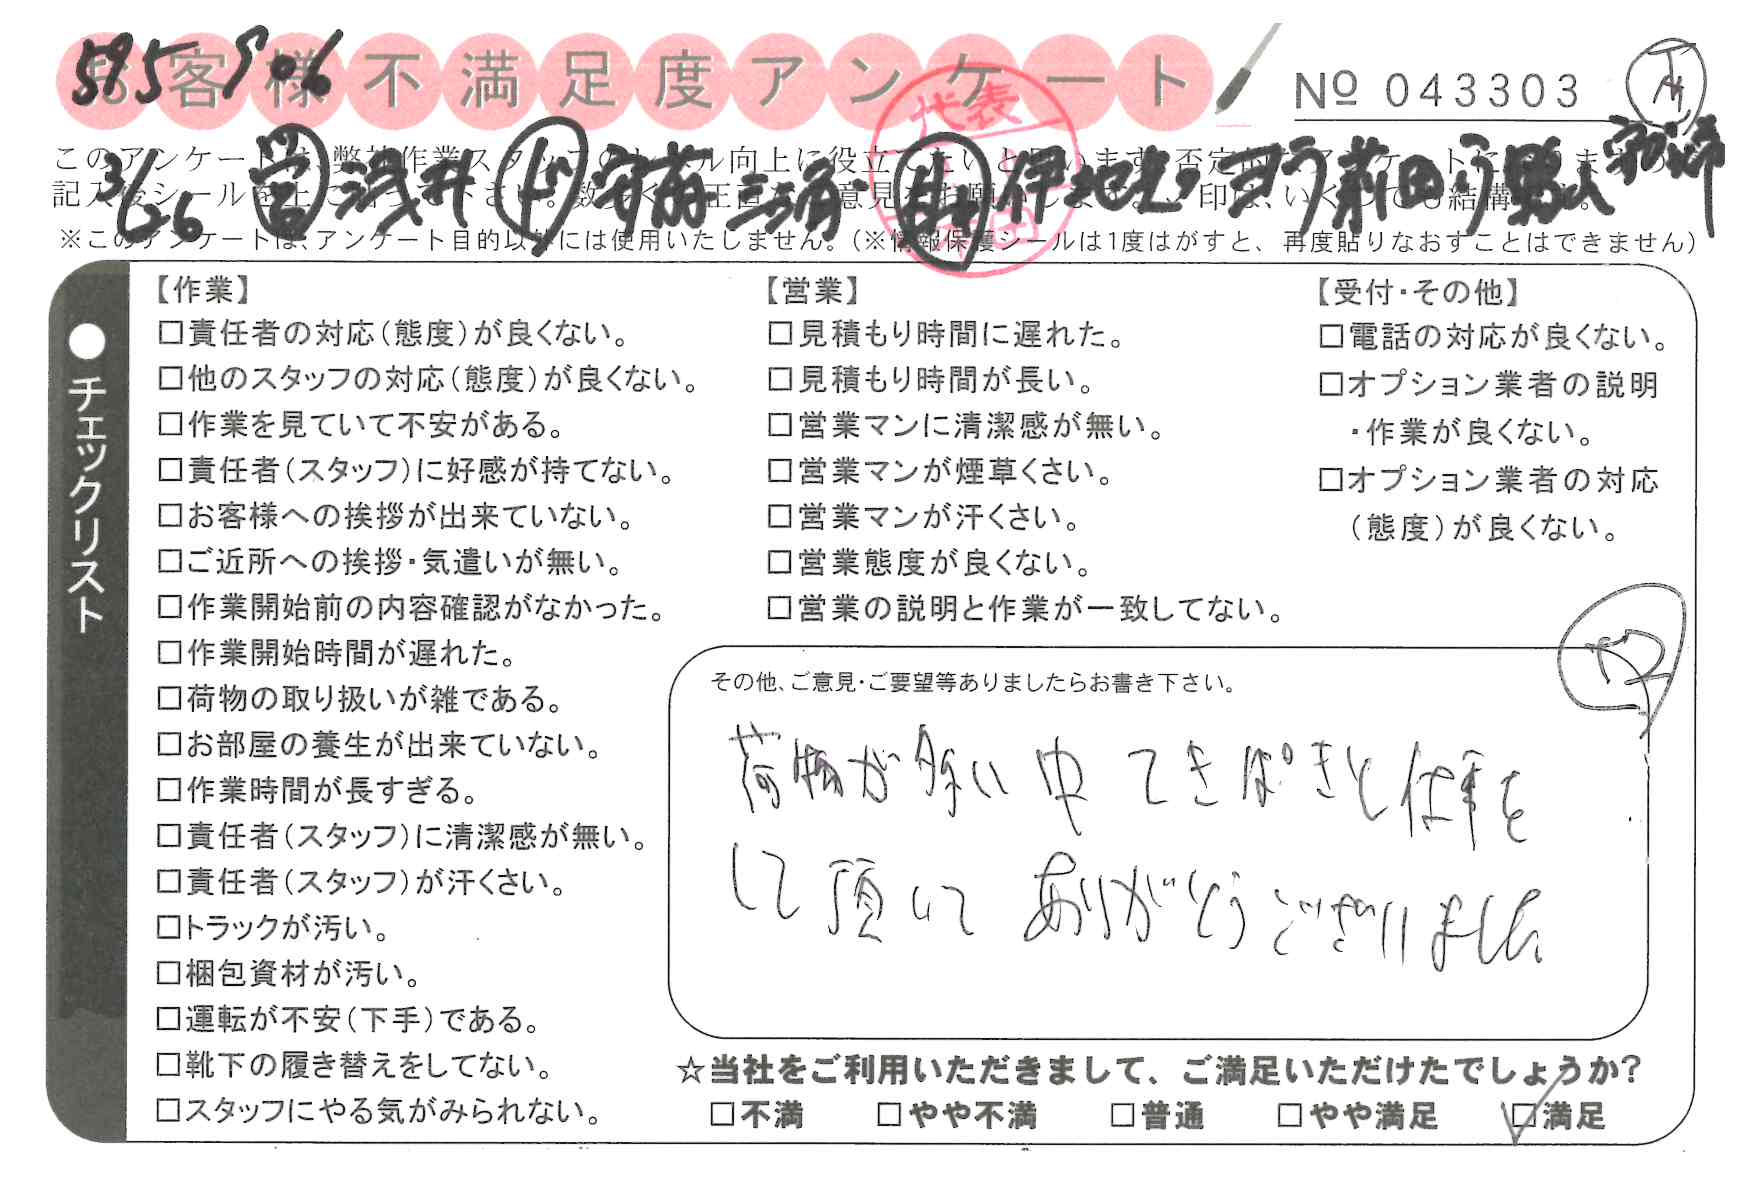 お客様不満足度アンケート
№ 043303
595
3/26 営 浅井 ド 安前 三角 助 伊地知 ヨシ 前田
代表
このアンケートは、弊社作業スタッフのレベル向上に役立てたいと思います。否定的なアンケートになりますが、
記入後シールを上に貼って下さい。数多くの正直な意見をお願いします。✓印は、いくつでも結構です。
※このアンケートは、アンケート目的以外には使用いたしません。（※情報保護シールは1度はがすと、再度貼りなおすことはできません）
●チェックリスト
【作業】
□責任者の対応（態度）が良くない。
□他のスタッフの対応（態度）が良くない。
□作業を見ていて不安がある。
□責任者（スタッフ）に好感が持てない。
□お客様への挨拶が出来ていない。
□ご近所への挨拶・気遣いが無い。
□作業開始前の内容確認がなかった。
□作業開始時間が遅れた。
□荷物の取り扱いが雑である。
□お部屋の養生が出来ていない。
□作業時間が長すぎる。
□責任者（スタッフ）に清潔感が無い。
□責任者（スタッフ）が汗くさい。
□トラックが汚い。
□梱包資材が汚い。
□運転が不安（下手）である。
□靴下の履き替えをしてない。
□スタッフにやる気がみられない。
【営業】
□見積もり時間に遅れた。
□見積もり時間が長い。
□営業マンに清潔感が無い。
□営業マンが煙草くさい。
□営業マンが汗くさい。
□営業態度が良くない。
□営業の説明と作業が一致してない。
【受付・その他】
□電話の対応が良くない。
□オプション業者の説明
・作業が良くない。
□オプション業者の対応
（態度）が良くない。
その他、ご意見・ご要望等ありましたらお書き下さい。
荷物が多い中 てきぱきと仕事を
して頂いて ありがとうございました
☆当社をご利用いただきまして、ご満足いただけたでしょうか?
□不満 □やや不満 □普通 □やや満足 ☑満足